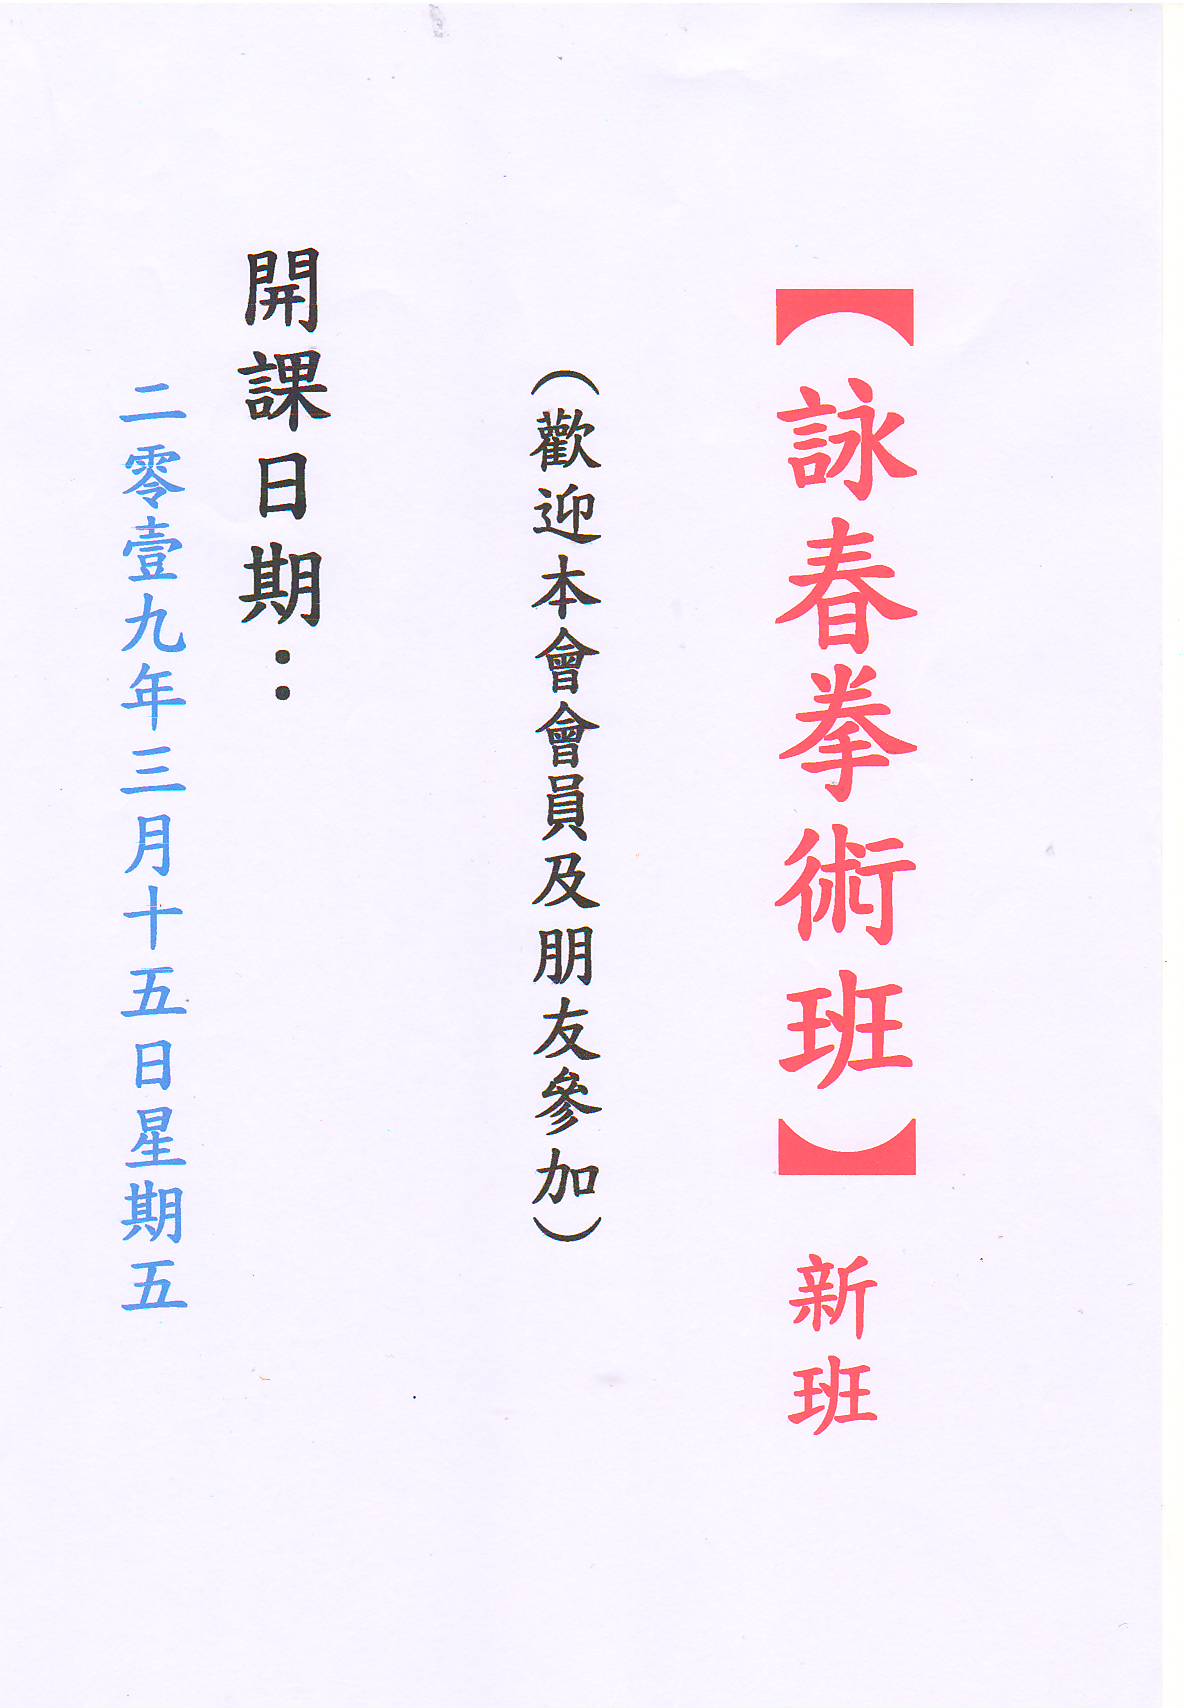 【詠春拳術班】 新班
（歡迎本會會員及朋友參加）
開課日期：
二零壹九年三月十五日星期五